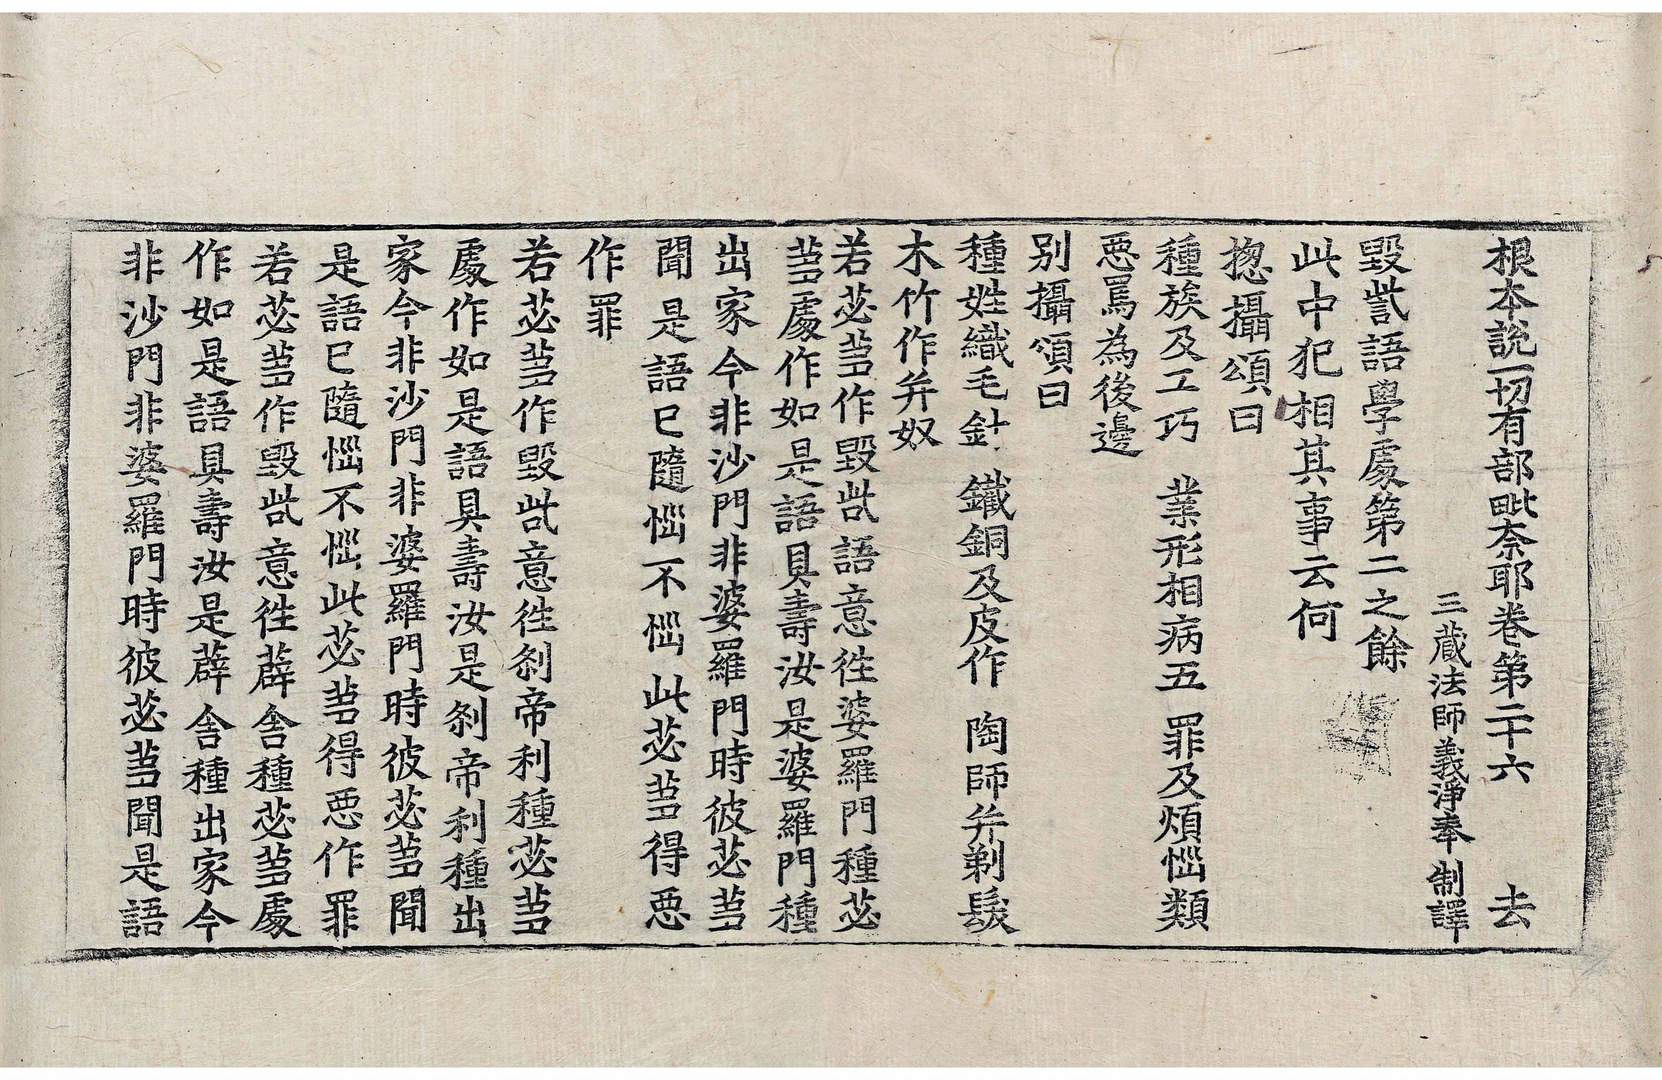 根本說一切有部毗奈耶卷第二十六 去
三藏法師義淨奉 制譯
毀訾語學處第二之餘
此中犯相其事云何
揔攝頌曰
種族及工巧 業形相病五 罪及煩惱類
惡罵為後邊
別攝頌曰
種姓織毛針 鐵銅及皮作 陶師并剃髮
木竹作并奴
若苾芻作毀呰語意徃婆羅門種苾
芻處作如是語具壽汝是婆羅門種
出家今非沙門非婆羅門時彼苾芻
聞是語已隨惱不惱此苾芻得惡
作罪
若苾芻作毀呰意徃剎帝利種苾芻
處作如是語具壽汝是剎帝利種出
家今非沙門非婆羅門時彼苾芻聞
是語已隨惱不惱此苾芻得惡作罪
若苾芻作毀呰意徃薜舍種苾芻處
作如是語具壽汝是薜舍種出家今
非沙門非婆羅門時彼苾芻聞是語